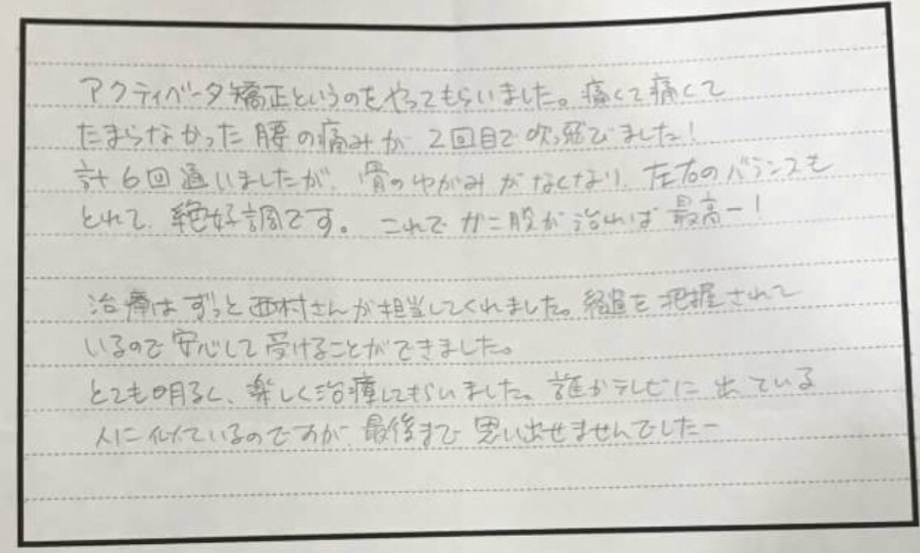 アクティベータ矯正というのをやってもらいました。痛くて痛くて
たまらなかった腰の痛みが2回目で吹っ飛びました!
計6回通いましたが、骨のゆがみがなくなり、左右のバランスも
とれて、絶好調です。これでガニ股が治れば最高ー!
治療はずっと西村さんが担当してくれました。経過を把握されて
いるので安心して受けることができました。
とても明るく、楽しく治療してもらいました。誰かテレビに出ている
人に似ているのですが、最後まで思い出せませんでしたー